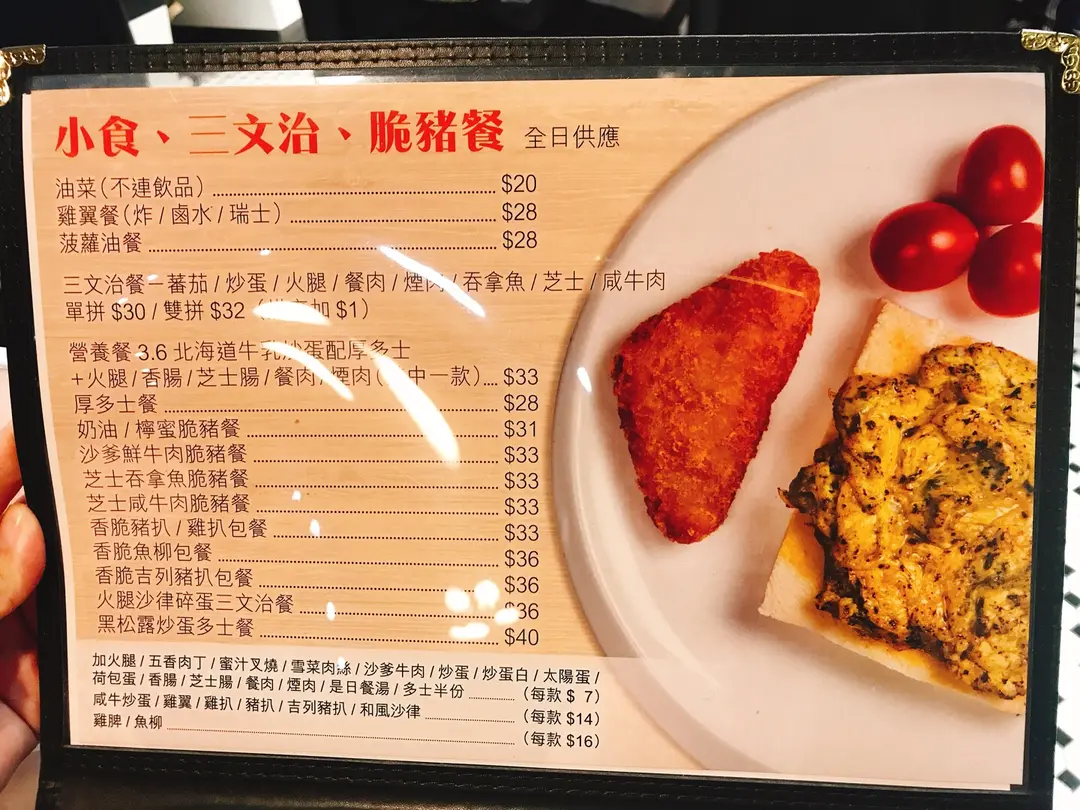 小食、三文治、脆豬餐 全日供應
油菜(不連飲品) $20
雞翼餐(炸/鹵水/瑞士) $28
菠蘿油餐 $28
三文治餐-蕃茄/炒蛋/火腿/餐肉/煙肉/吞拿魚/芝士/咸牛肉
單拼 $30/雙拼 $32 加 $1)
營養餐 3.6 北海道牛乳炒蛋配厚多士
+火腿/香腸/芝士腸/餐肉/煙肉( 中一款) $33
厚多士餐 $28
奶油/檸蜜脆豬餐 $31
沙爹鮮牛肉脆豬餐 $33
芝士吞拿魚脆豬餐 $33
芝士咸牛肉脆豬餐 $33
香脆豬扒/雞扒包餐 $33
香脆魚柳包餐 $36
香脆吉列豬扒包餐 $36
火腿沙律碎蛋三文治餐 $36
黑松露炒蛋多士餐 $40
加火腿/五香肉丁/蜜汁叉燒/雪菜肉絲/沙爹牛肉/炒蛋/炒蛋白/太陽蛋/
荷包蛋/香腸/芝士腸/餐肉/煙肉/是日餐湯/多士半份 (每款 $ 7)
咸牛炒蛋/雞翼/雞扒/豬扒/吉列豬扒/和風沙律 (每款 $14)
雞脾/魚柳 (每款 $16)